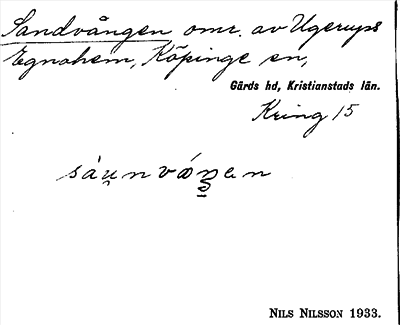 Sandvången omr. av Ugerups
Egnahem, Köpinge sn,
Gärds hd, Kristianstads län.
Kring 15
NILS NILSSON 1933.